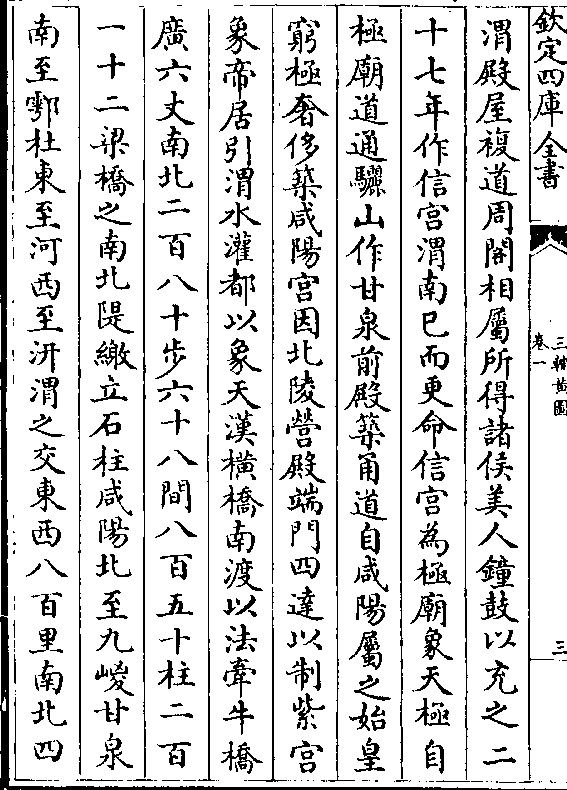 欽定四庫全書
三輔黃圖
卷一
三
渭殿屋複道周閣相屬所得諸侯美人鐘鼓以充之二
十七年作信宮渭南已而更命信宮為極廟象天極自
極廟道通驪山作甘泉前殿築甬道自咸陽屬之始皇
窮極奢侈築咸陽宮因北陵營殿端門四達以制紫宮
象帝居引渭水灌都以象天漢橫橋南渡以法牽牛橋
廣六丈南北二百八十步六十八間八百五十柱二百
一十二梁橋之南北隄繳立石柱咸陽北至九嵕甘泉
南至鄠杜東至河西至汧渭之交東西八百里南北四